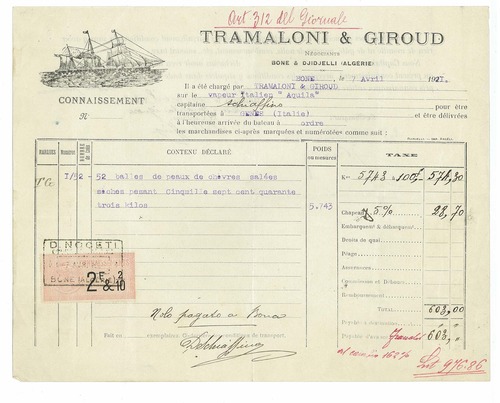 Art 312 del Giornale
TRAMALONI & GIROUD
NÉGOCIANTS
BONE & DJIDJELLI (ALGÉRIE)
BONE, le 7 Avril 1921.
CONNAISSEMENT
Il a été chargé par TRAMALONI & GIROUD
sur le vapeur italien "Aquila"
capitaine Schiaffino pour être
transportées à GENES (Italie) et être délivrées
à l'heureuse arrivée du bateau à ordre
les marchandises ci-après marquées et numérotées comme suit :
MARQUES Numéros NOMBRE de Colis CONTENU DÉCLARÉ POIDS ou mesures TAXE
I/52 - 52 balles de peaux de chèvres salées
sèches pesant Cinqmille sept cent quarante
trois kilos 5.743
Kos 5743 à 100,- 574,30
Chapeau 5% 28,70
Embarquemt & débarquemt
Droits de quai
Péage
Assurances
Commissions et Débours
Remboursement
TOTAL 603,00
D. NOCETI
BONE (ALGÉRIE)
2 F. 2
& 10
Nolo pagato a Bona
Fait en exemplaires conditions de transport.
DSchiaffino
Payable d'avance
Payable d'arrivée Franchi 603,"
al cambio 162%
Lit 976.86